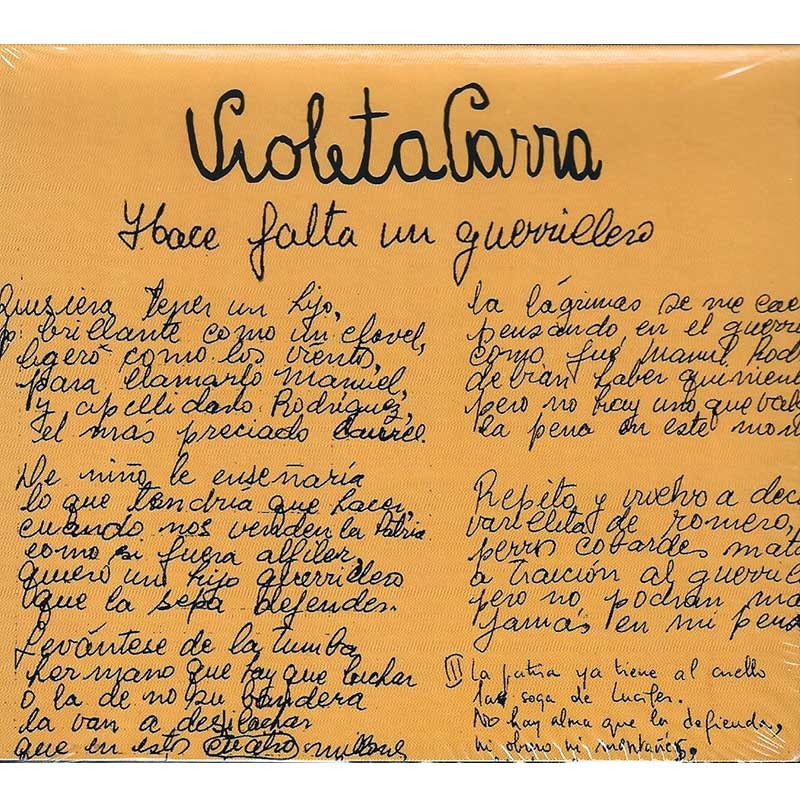 Violeta Parra
Hace falta un guerrillero
Quisiera tener un hijo,
brillante como un clavel,
ligero como los viento,
para llamarlo Manuel,
y apellidarlo Rodríguez,
el más preciado laurel.
De niño le enseñaría
lo que tendría que hacer,
cuando nos venden la Patria
como si fuera alfiler,
quiero un hijo guerrillero
que la sepa defender.
Levántese de la tumba
hermano que hay que luchar
o la de no su bandera
la van a desilachar
que en estos cuatro
la lágrimas se me cae
pensando en el guerri
como fué Manuel Rod
debían haber quinien
pero no hay uno que val
la pena en este mom
Repito y vuelvo a dec
varillita de romero,
perros cobardes mata
a traición al guerril
pero no podrán ma
jamás en mi pensa
II La patria ya tiene al cuello
la soga de Lucifer.
No hay alma que la defienda,
ni obrero ni montañés,